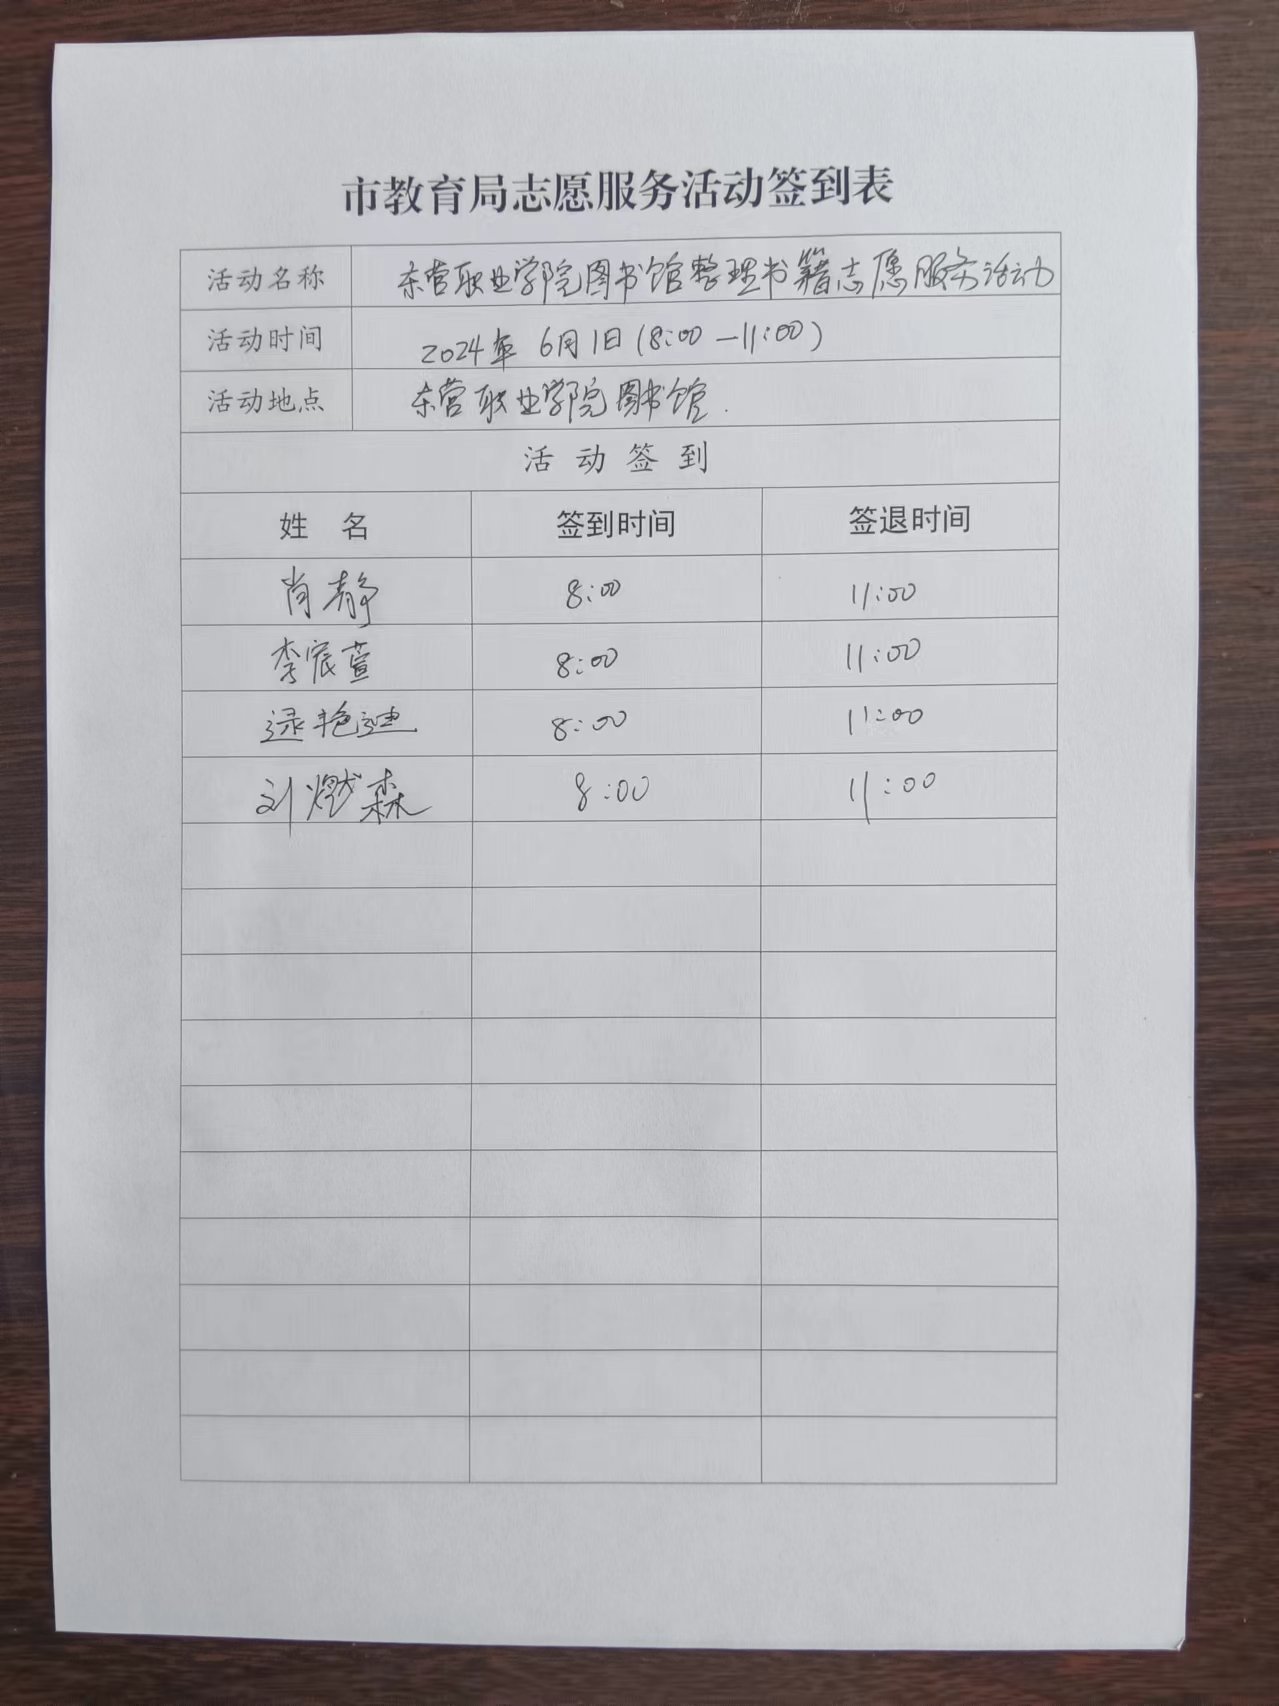 市教育局志愿服务活动签到表
活动名称 东营职业学院图书馆整理书籍志愿服务活动
活动时间 2024年 6月1日(8:00-11:00)
活动地点 东营职业学院图书馆.
活动签到
姓 名 签到时间 签退时间
肖静 8:00 11:00
李宸萱 8:00 11:00
逯艳迪 8:00 11:00
刘燃森 8:00 11:00